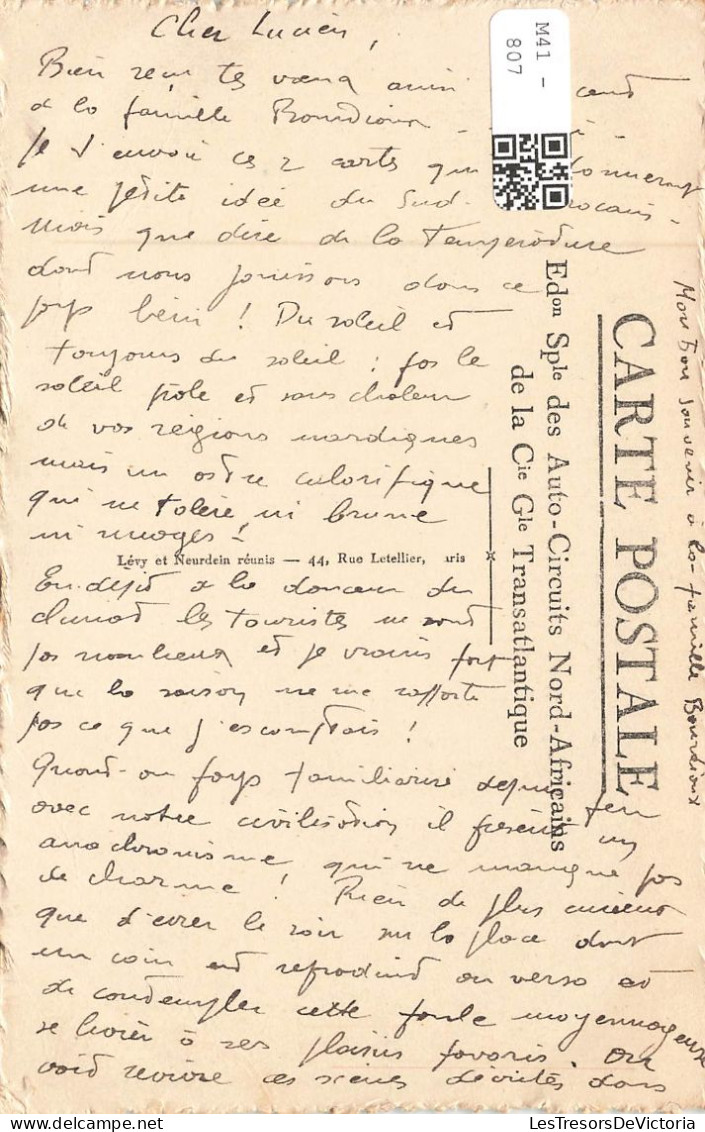 Cher Lucien,
Bien reçu tes vœux ainsi
à la famille Bourdioux
Je t'envoie ces 2 cartes qui donneront
une petite idée du Sud-
Mais que dire de la Température
dont nous jouissons dans ce
pays béni ! Du soleil et
toujours du soleil : pas le
soleil pâle et sans chaleur
de vos régions nordiques
mais un astre calorifique
qui ne tolère ni brume
ni nuages !
En dépit de la douceur du
climat les touristes ne sont
pas nombreux et je crains fort
que la saison ne me rapporte
pas ce que j'escomptais !
Quant au pays familiarisé depuis peu
avec notre civilisation il présente un
anachronisme qui ne manque pas
de charme ! Rien de plus curieux
que d'errer le soir sur la place dont
un coin est reproduit au verso et
de contempler cette foule moyennageuse
se livrer à ses plaisirs favoris. On
voit revivre ces scènes décrites dans
Mon bon souvenir à la famille Bourdioux
CARTE POSTALE
Edon Sple des Auto-Circuits Nord-Africains
de la Cie Gle Transatlantique
Lévy et Neurdein réunis — 44, Rue Letellier, aris
M41 -
807
LesTresorsDeVictoria
LesTresorsDeVictoria